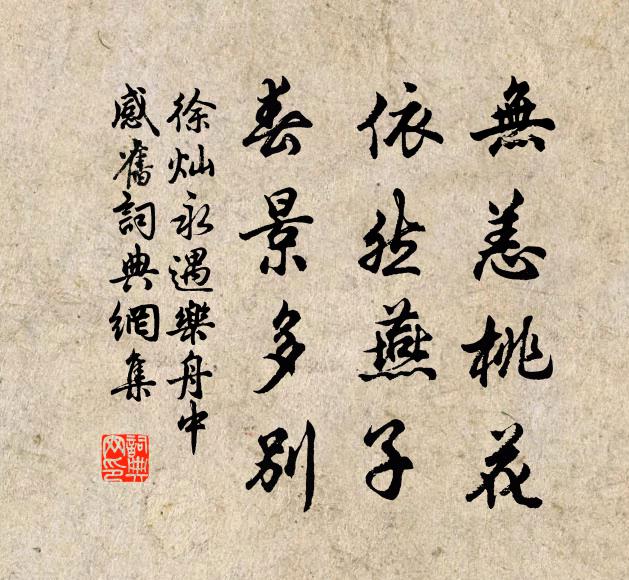 無恙桃花
依然燕子
春景多別
徐灿永遇樂舟中
感舊詞典網集
詞典
网印